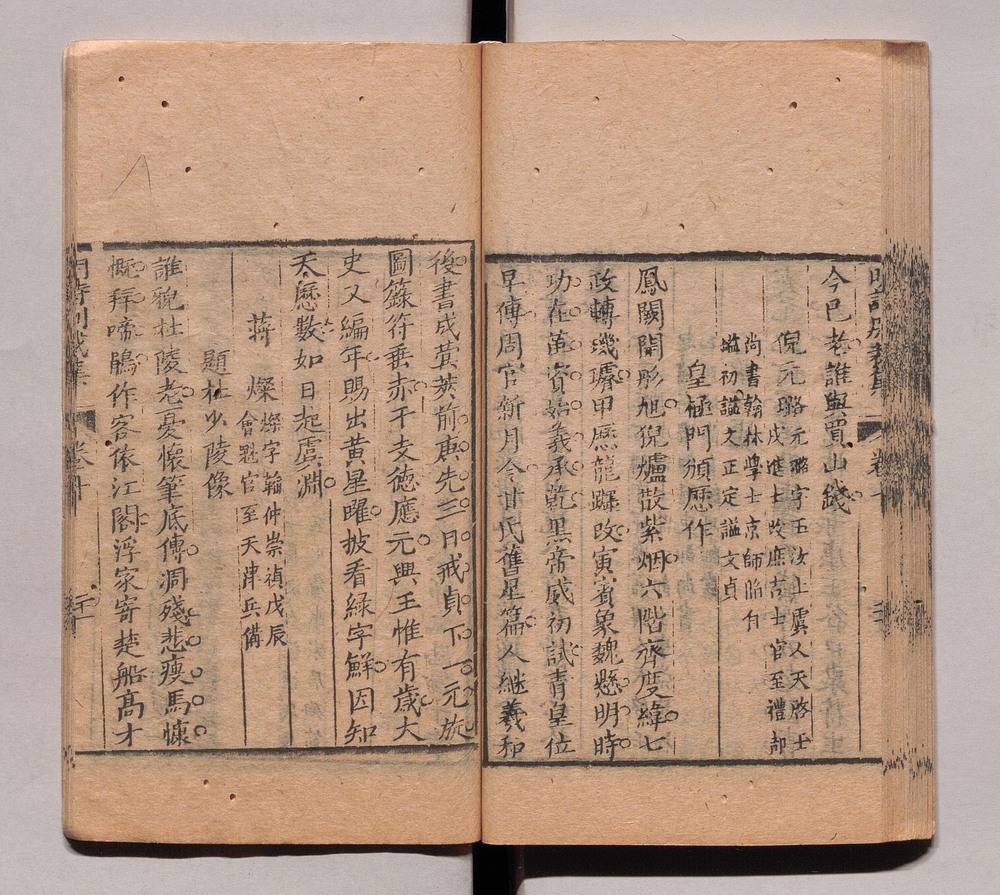 今已老誰與買山錢
倪元璐元璐字玉汝上虞人天啓壬
戌進士改庶吉士官至禮部
尚書翰林學士京師陷自
縊初諡文正定諡文貞
皇極門頒厯作
鳳闕開彤旭猊爐散紫烟六階齊度緯七
政轉璣璿甲厯龍躔改寅賓象魏懸明時
功在茲資始義承乾黑帝威初試青皇位
早傳周官新月令甘氏舊星篇人繼羲和
後書成蓂莢前庚先三日戒貞下一元旋
圖籙符垂赤干支德應元興王惟有歲大
史又編年賜出黃星曜披看綠字鮮因知
天厯數如日起虞淵
蔣 燦燦字韜仲崇禎戊辰
會魁官至天津兵備
題杜少陵像
誰貌杜陵老憂懷筆底傳凋殘悲瘦馬慷
慨拜啼鵑作客依江閣浮家寄楚船高才
明詩別裁集 卷十 二十一